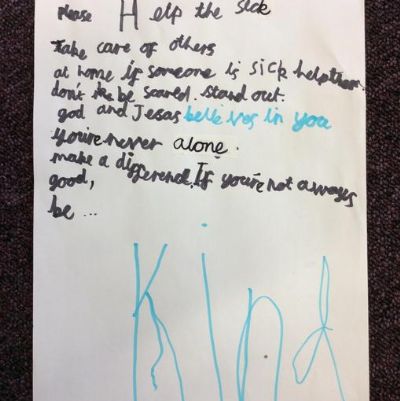 Please Help the sick
take care of others
at home if someone is sick help them.
don't be scared. stand out.
god and Jesas believes in you
you're never alone.
make a difference. If you're not always
good,
be ...
kind